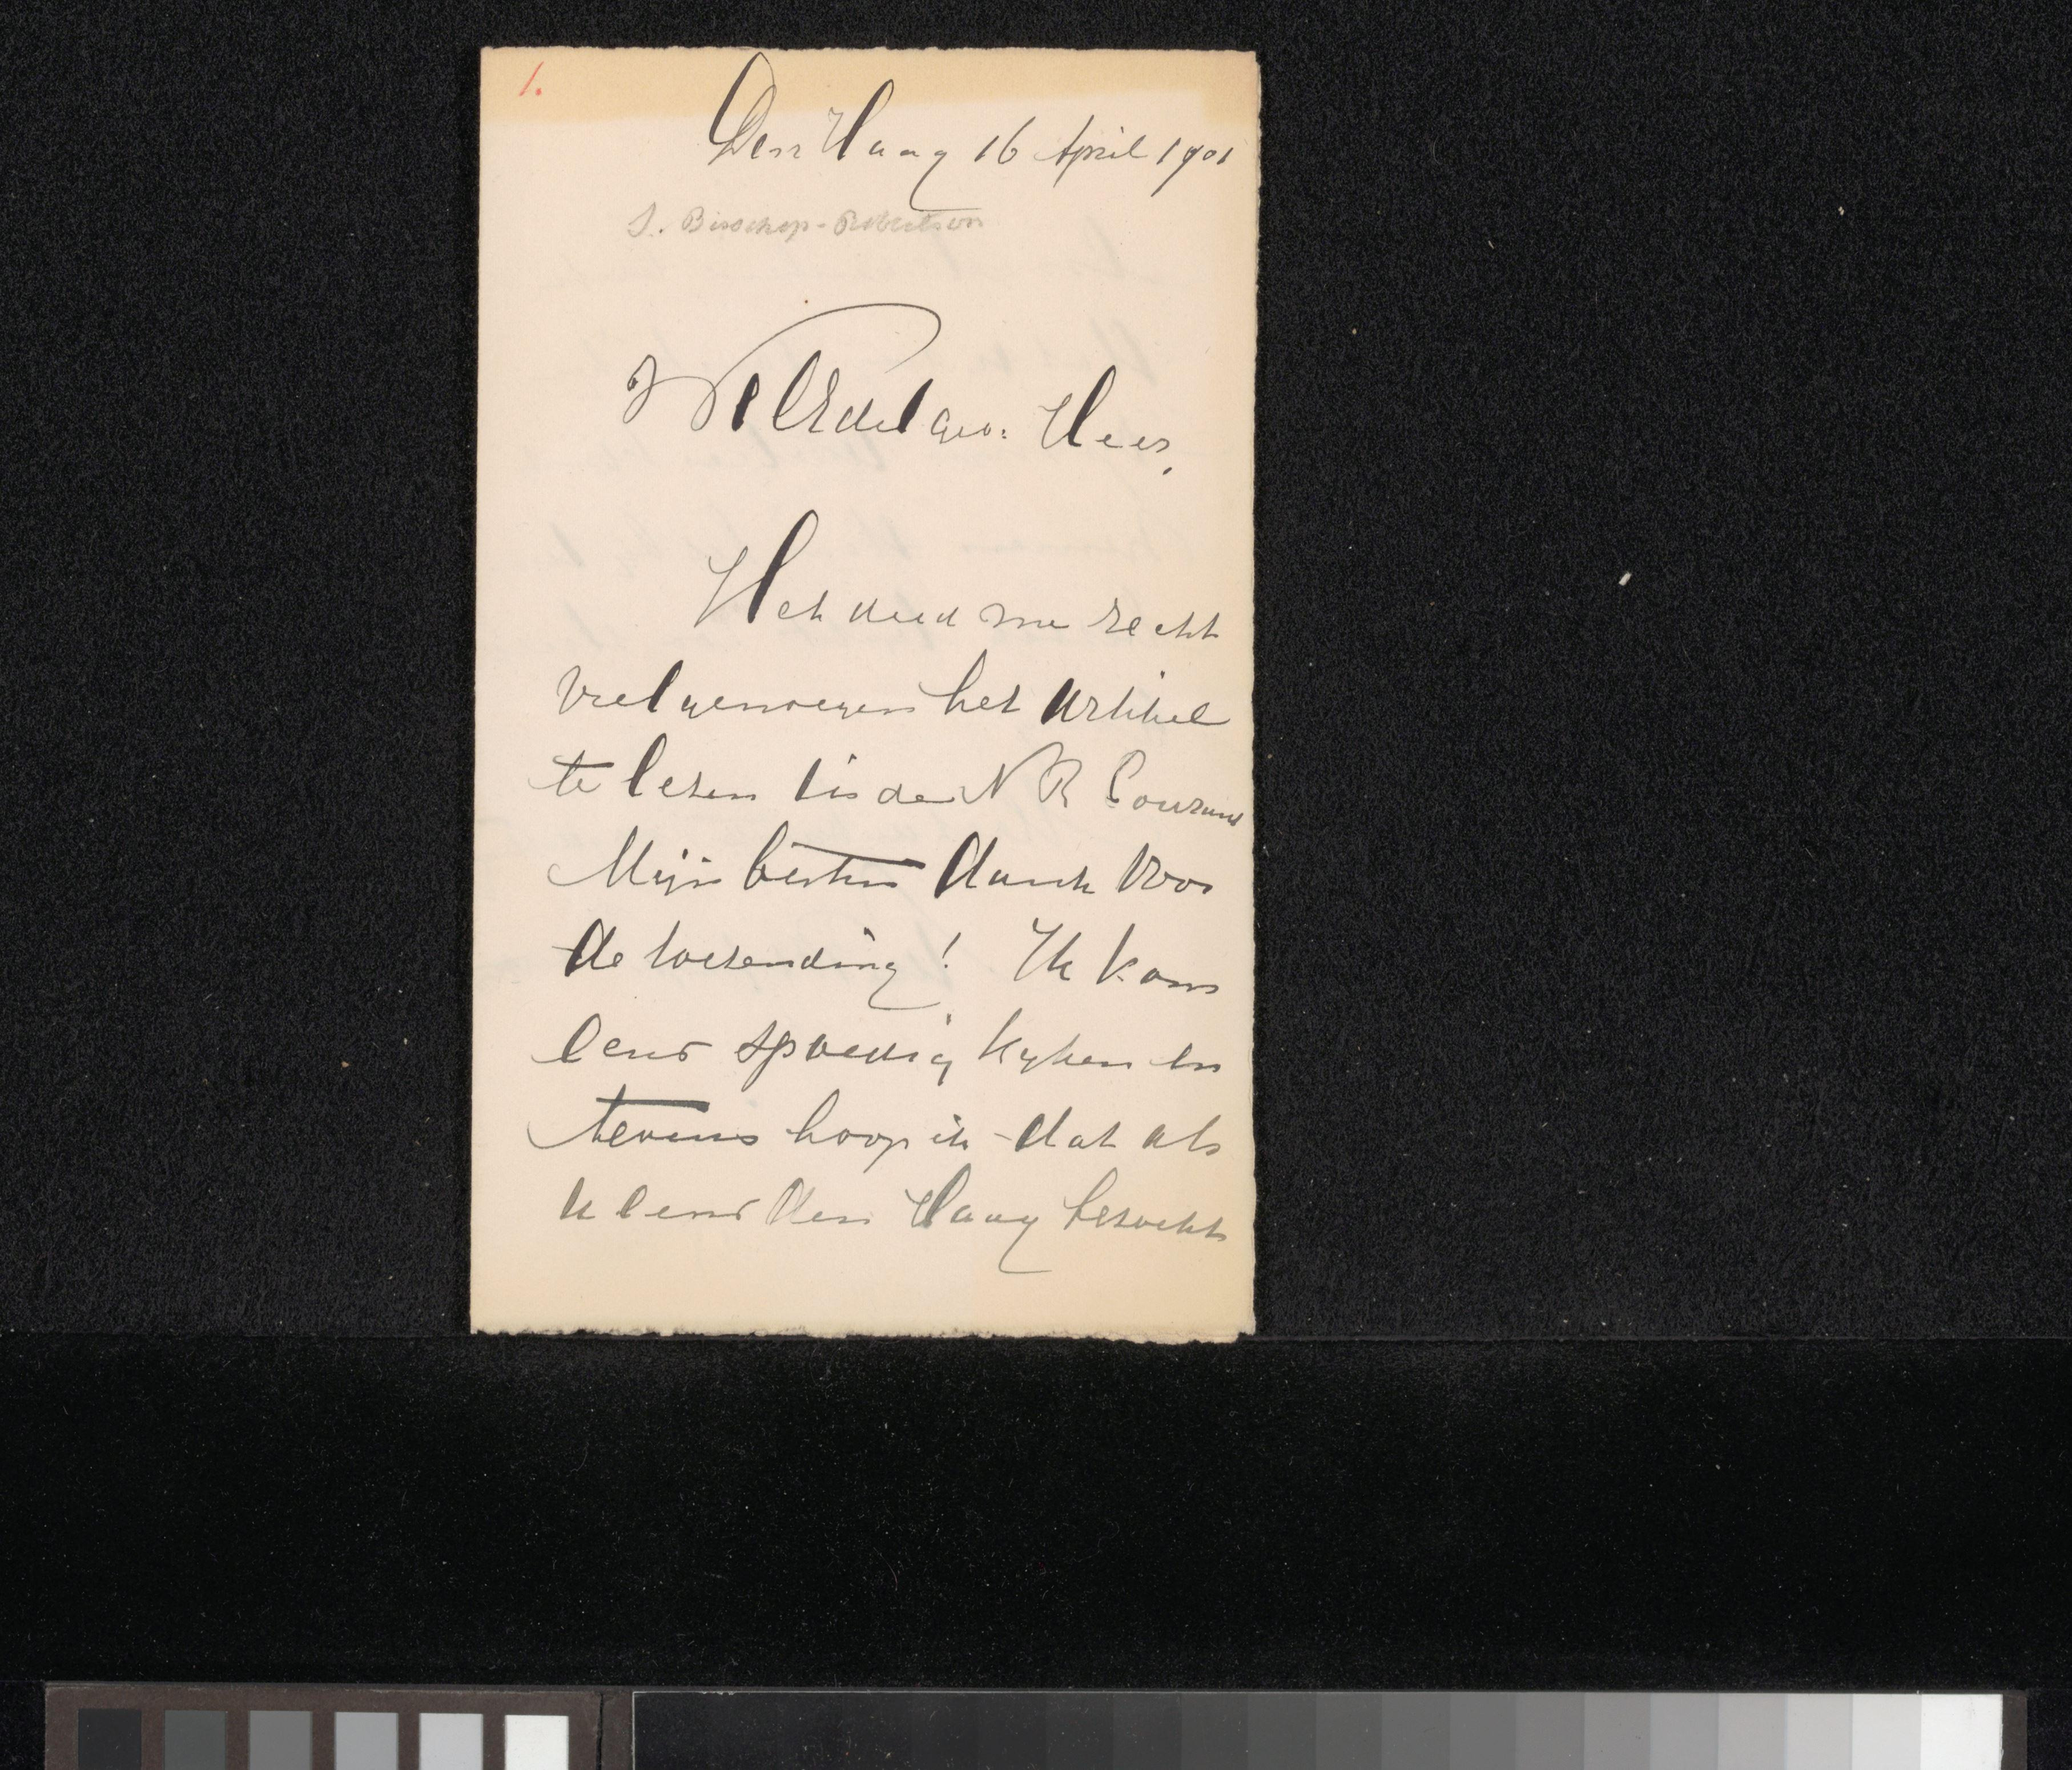 1.
Den Haag 16 April 1901
S. Bisschop-Robertson
WelEdelGeb: Heer,
Het deed me recht
veel genoegen het artikel
te lezen in de N R Courant
Mijn besten dank voor
de toezending! Ik kom
eens spoedig kyken en
tevens hoop ik dat als
u eens Den Haag bezoekt